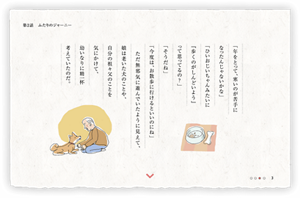 第2話 ふたりのジャーニー
「年をとって、寒いのが苦手に
なったんじゃないかな」
「ひいおじいちゃんみたいに
『歩くのがしんどいよう』
って思ってるの？」
「そうだね」
「今度は、お散歩に行けるといいのにね」
ただ無邪気に遊んでいたように見えて、
娘は老いた犬のことや、
自分の祖々父のことを
気にかけて、
幼いなりに精一杯
考えていたのだ。
3